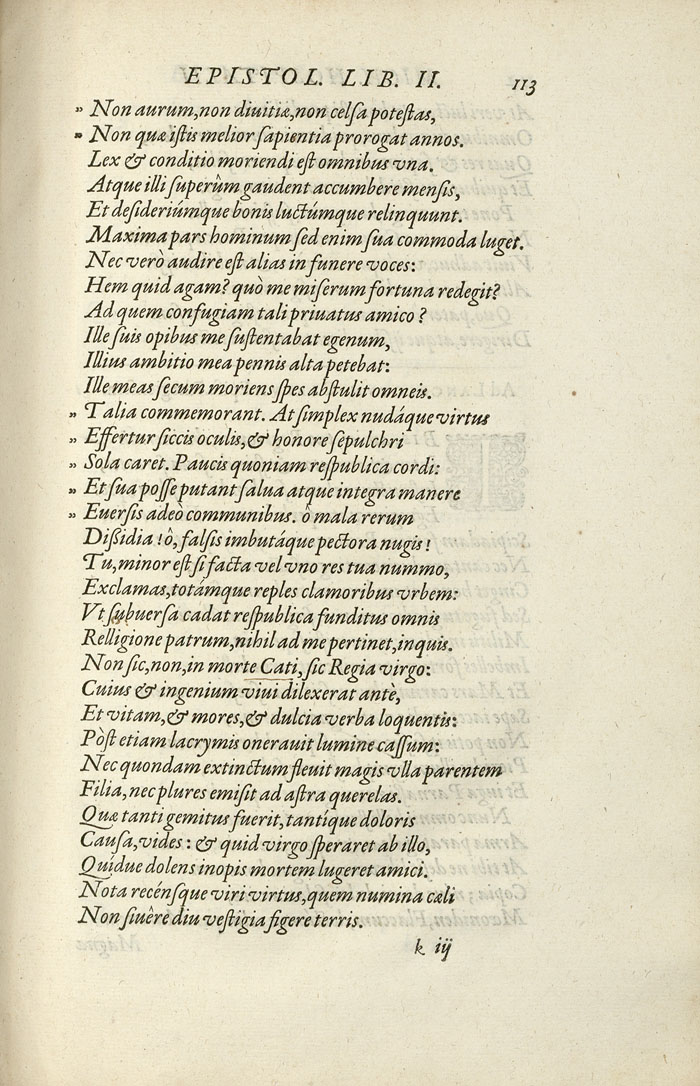 EPISTOL. LIB. II. 113
„ Non aurum, non diuitiæ, non celſa poteſtas,
„ Non quæ iſtis melior ſapientia prorogat annos.
Lex & conditio moriendi eſt omnibus vna.
Atque illi ſuperûm gaudent accumbere menſis,
Et deſideriúmque bonis luctúmque relinquunt.
Maxima pars hominum ſed enim ſua commoda luget.
Nec verò audire eſt alias in funere voces:
Hem quid agam? quò me miſerum fortuna redegit?
Ad quem confugiam tali priuatus amico?
Ille ſuis opibus me ſuſtentabat egenum,
Illius ambitio mea pennis alta petebat:
Ille meas ſecum moriens ſpes abſtulit omneis.
„ Talia commemorant. At ſimplex nudáque virtus
„ Effertur ſiccis oculis, & honore ſepulchri
„ Sola caret. Paucis quoniam reſpublica cordi:
„ Et ſua poſſe putant ſalua atque integra manere
„ Euerſis adeò communibus. ô mala rerum
Dißidia! ô, falſis imbutáque pectora nugis!
Tu, minor eſt ſi facta vel vno res tua nummo,
Exclamas, totámque reples clamoribus vrbem:
Vt ſubuerſa cadat reſpublica funditus omnis
Relligione patrum, nihil ad me pertinet, inquis.
Non ſic, non, in morte Cati, ſic Regia virgo:
Cuius & ingenium viui dilexerat antè,
Et vitam, & mores, & dulcia verba loquentis:
Pòſt etiam lacrymis onerauit lumine caſſum:
Nec quondam extinctum fleuit magis vlla parentem
Filia, nec plures emiſit ad aſtra querelas.
Quæ tanti gemitus fuerit, tantique doloris
Cauſa, vides: & quid virgo ſperaret ab illo,
Quidue dolens inopis mortem lugeret amici.
Nota recénſque viri virtus, quem numina cæli
Non ſiuêre diu veſtigia figere terris.
k iij